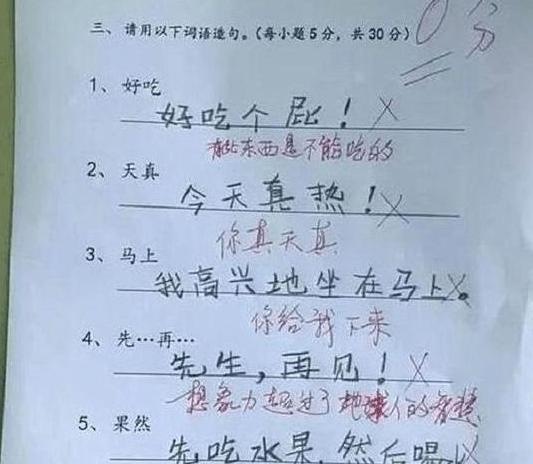 三、请用以下词语造句。(每小题5分，共30分) 0分
1、好吃
好吃个屁！
有些东西是不能吃的
2、天真
今天真热！
你真天真
3、马上
我高兴地坐在马上。
你给我下来
4、先…再…
先生，再见！
想象力超过了地球人的智慧
5、果然
先吃水果，然后喝